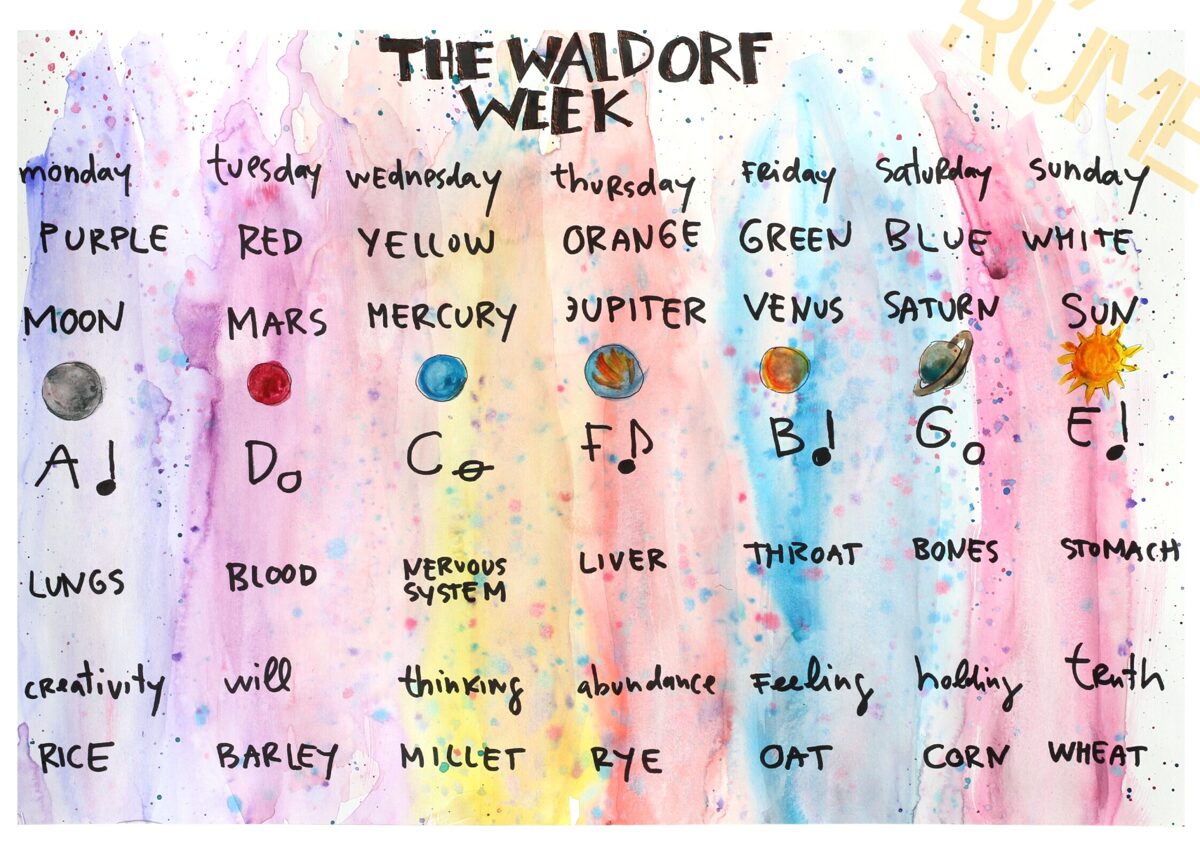 THE WALDORF
WEEK
monday tuesday wednesday thursday Friday saturday sunday
PURPLE RED YELLOW ORANGE GREEN BLUE WHITE
MOON MARS MERCURY JUPITER VENUS SATURN SUN
A D C F B G E
LUNGS BLOOD NERVOUS SYSTEM LIVER THROAT BONES STOMACH
creativity will thinking abundance Feeling holding truth
RICE BARLEY MILLET RYE OAT CORN WHEAT